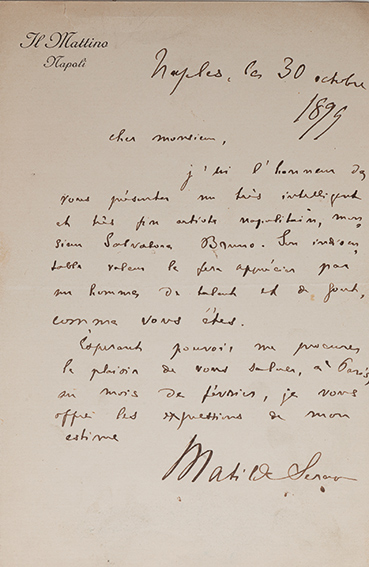 Il Mattino
Napoli
Naples, les 30 octobre
1899
cher monsieur,
j'ai l'honneur de
vous présenter un très intelligent
et très fin artiste napolitain, mon
sieur Salvatore Bruno. Son indiscu
table valeur le fera apprécier par
un homme de talent et de gout,
comme vous êtes.
Espérant pouvoir me procurer
le plaisir de vous saluer, à Paris,
au mois de février, je vous
offre les expressions de mon
estime
Matilde Serao